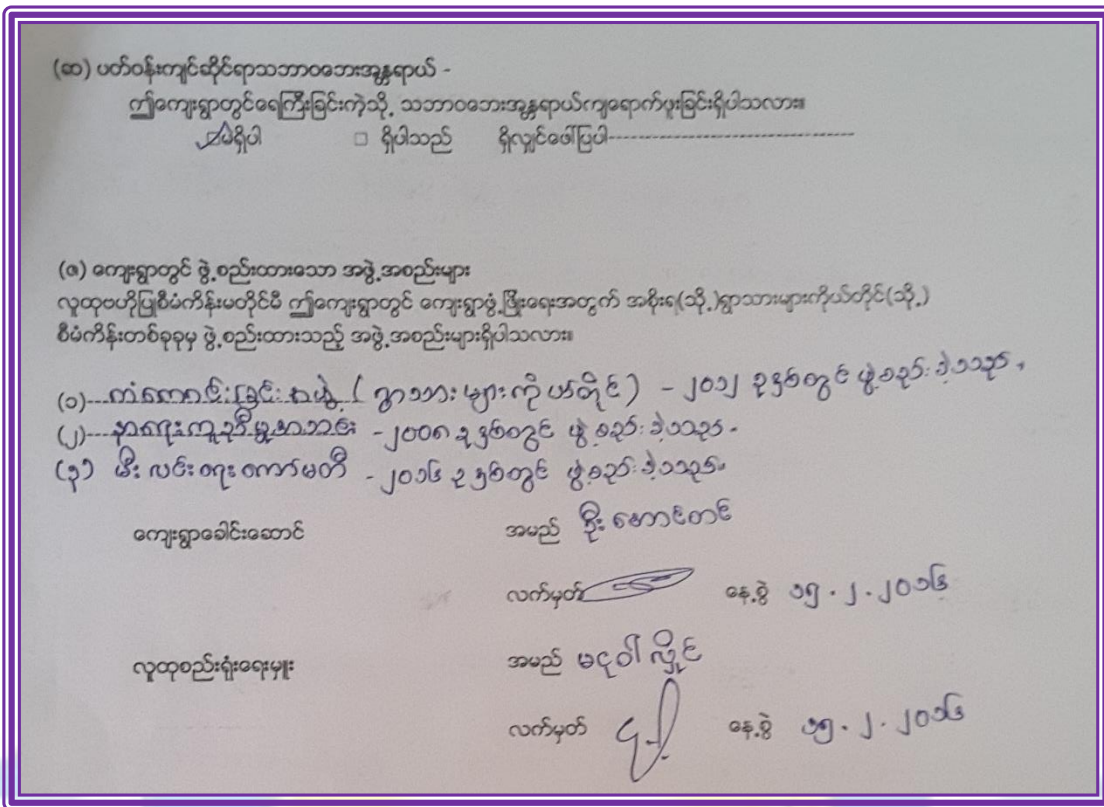 (ဆ) ပတ်ဝန်းကျင်ဆိုင်ရာသဘာဝဘေးအန္တရာယ် -
ဤကျေးရွာတွင်ရေကြီးခြင်းကဲ့သို့ သဘာဝဘေးအန္တရာယ်ကျရောက်ဖူးခြင်းရှိပါသလား။
မရှိပါ □ ရှိပါသည် ရှိလျှင်ဖေါ်ပြပါ------------------------------
(ဇ) ကျေးရွာတွင် ဖွဲ့စည်းထားသော အဖွဲ့အစည်းများ
လူထုဗဟိုပြုစီမံကိန်းမတိုင်မီ ဤကျေးရွာတွင် ကျေးရွာဖွံ့ဖြိုးရေးအတွက် အစိုးရ(သို့)ရွာသားများကိုယ်တိုင်(သို့)
စီမံကိန်းတစ်ခုခုမှ ဖွဲ့စည်းထားသည့် အဖွဲ့အစည်းများရှိပါသလား။
(၁) အဖွဲ့ (ရွာသားများကိုယ်တိုင်) - ၂၀၁၂ ခုနှစ်တွင် ဖွဲ့စည်းခဲ့သည်။
(၂) နာရေးကူညီမှုအသင်း - ၂၀၀၈ ခုနှစ်တွင် ဖွဲ့စည်းခဲ့သည်။
(၃) မီးလင်းရေးကော်မတီ - ၂၀၁၆ ခုနှစ်တွင် ဖွဲ့စည်းခဲ့သည်။
ကျေးရွာခေါင်းဆောင် အမည် ဦးအောင်တင်
လက်မှတ် နေ့စွဲ ၁၅.၂.၂၀၁၆
လူထုစည်းရုံးရေးမှူး အမည် မငုဝါလှိုင်
လက်မှတ် နေ့စွဲ ၁၅.၂.၂၀၁၆